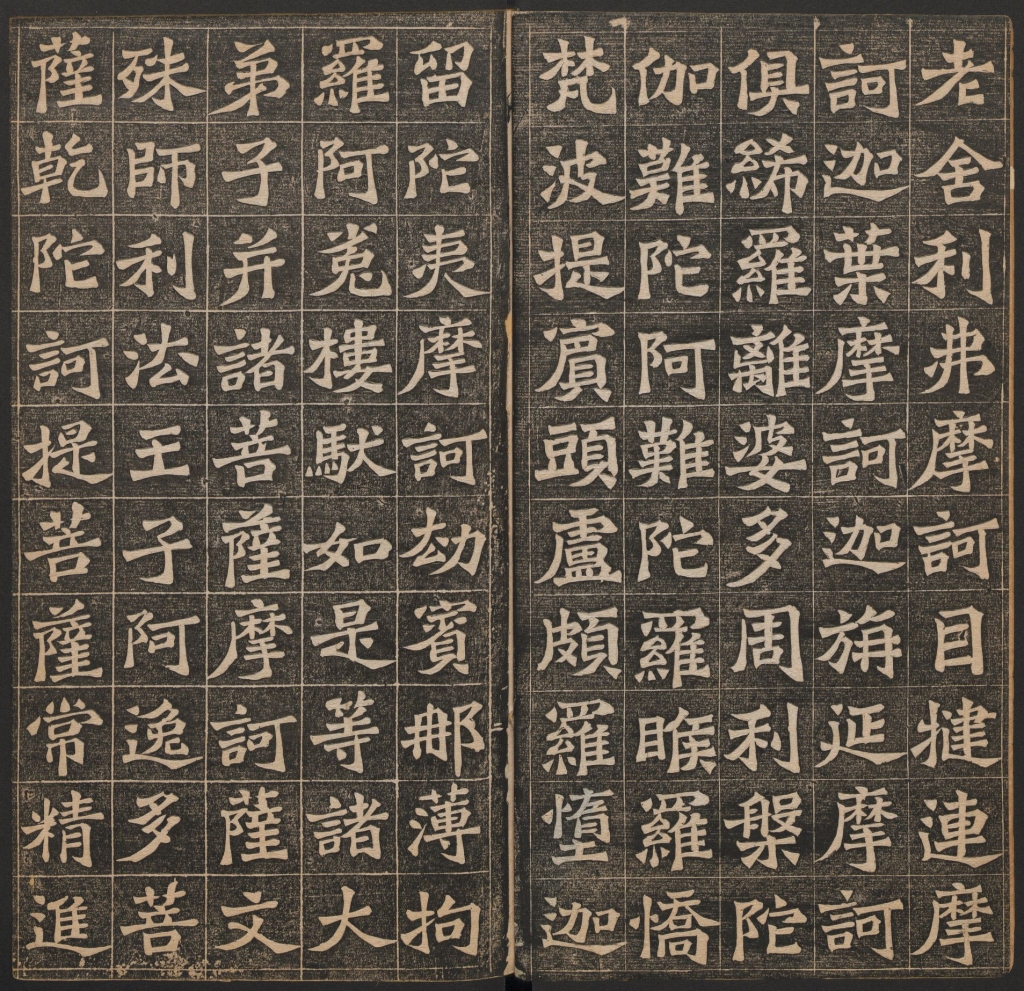 老舍利弗摩訶目揵連摩
訶迦葉摩訶迦旃延摩訶
俱絺羅離婆多周利槃陀
伽難陀阿難陀羅睺羅憍
梵波提賔頭盧頗羅惰迦
留陀夷摩訶劫賓那薄拘
羅阿㝹樓馱如是等諸大
弟子并諸菩薩摩訶薩文
殊師利法王子阿逸多菩
薩乾陀訶提菩薩常精進